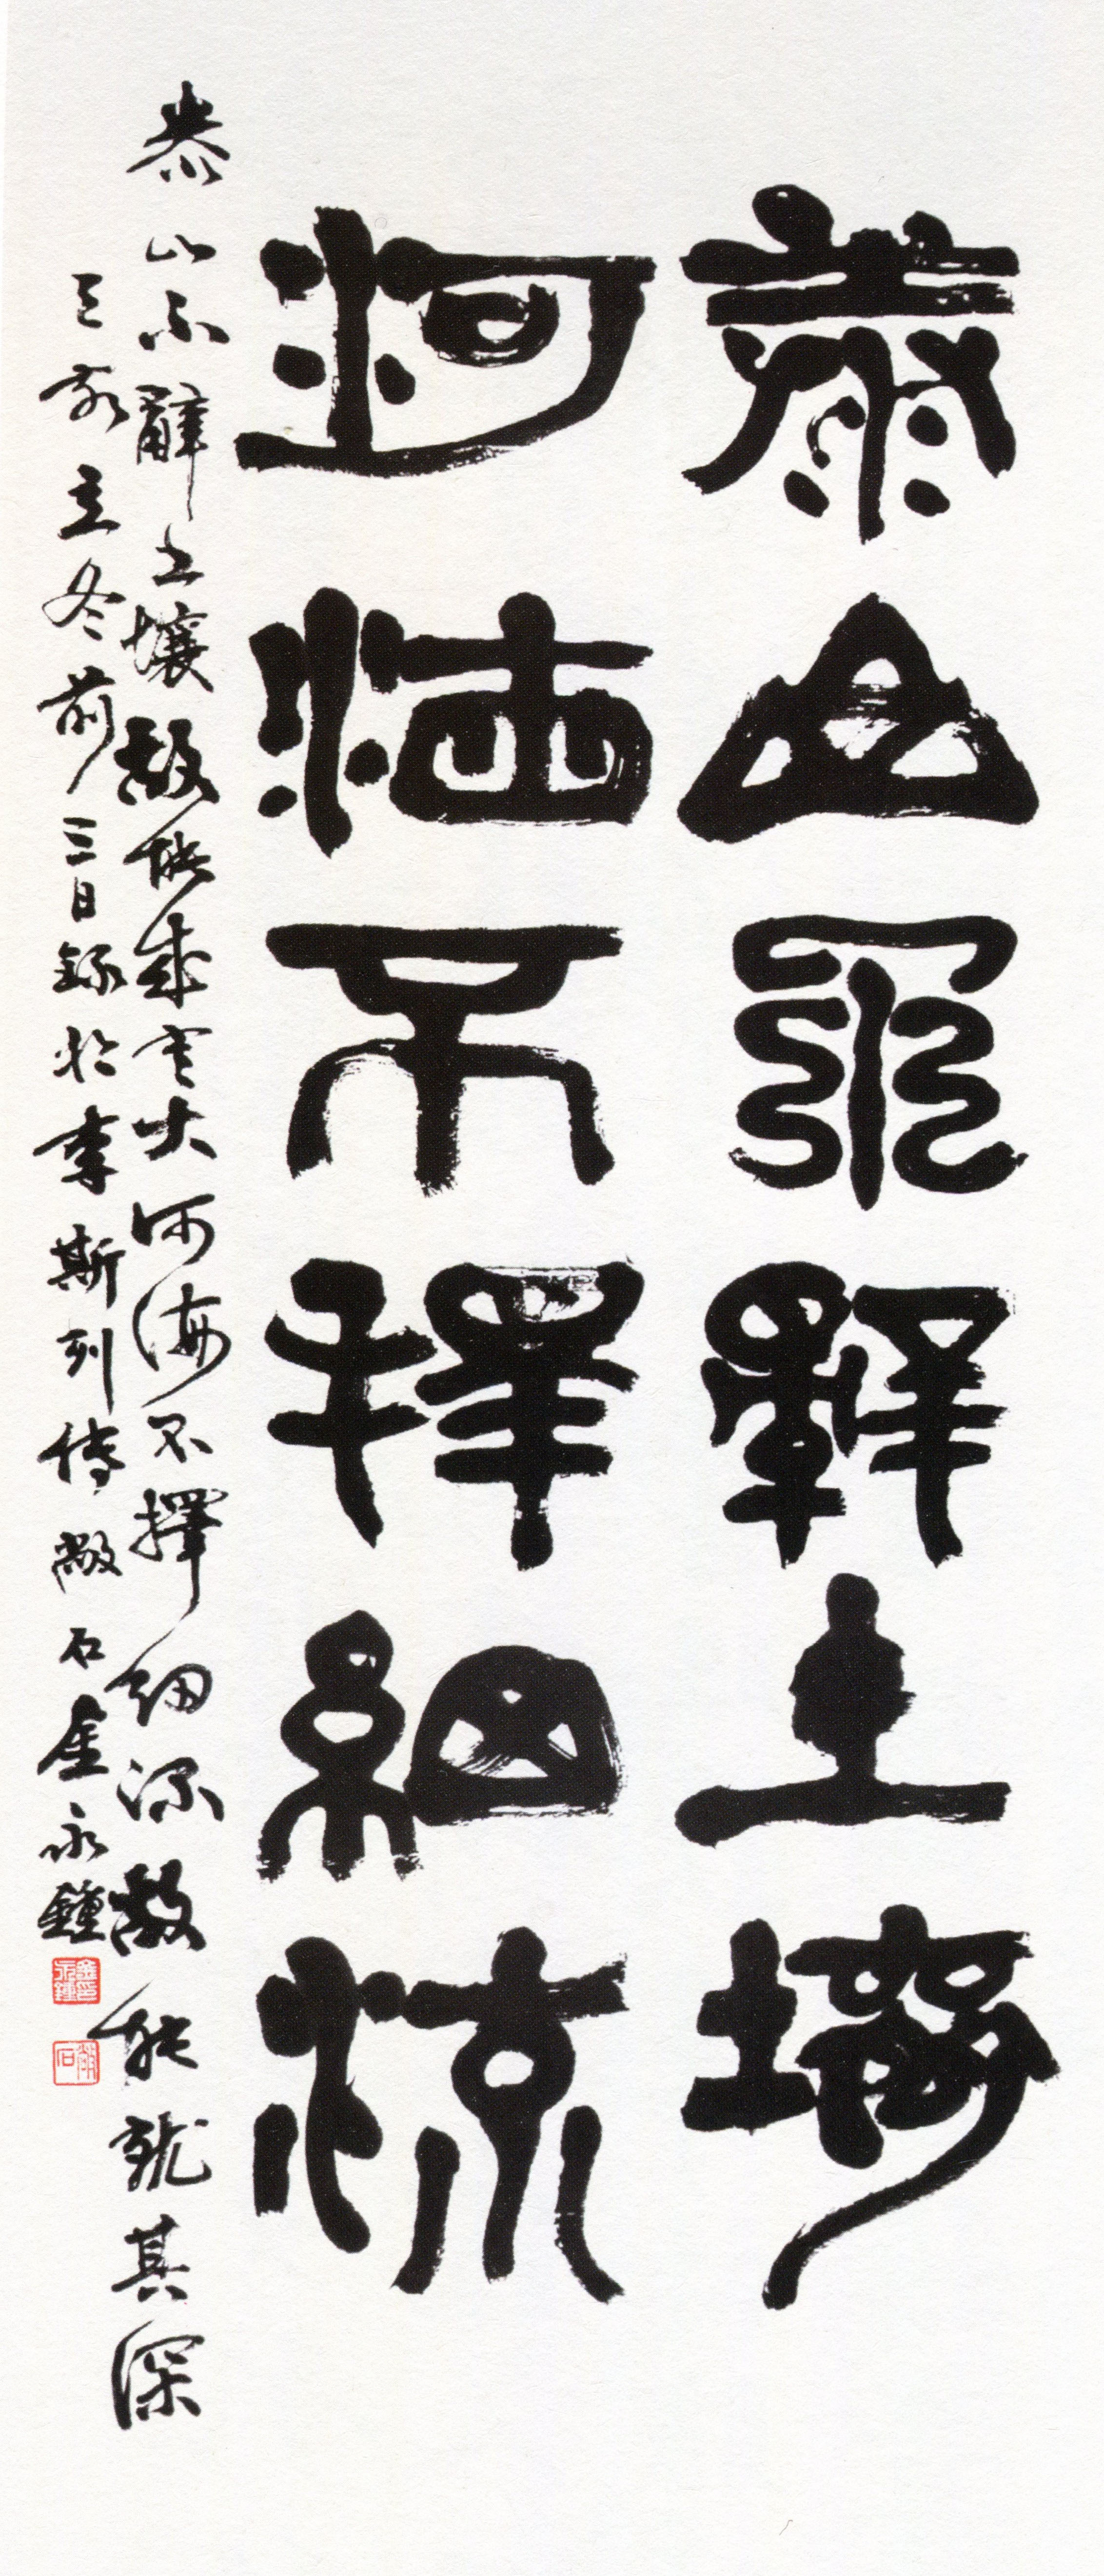 泰山不辭土壤
河海不擇細流
泰山不辭土壤故能成其大河海不擇細流故能就其深
己亥立冬前三日錄於李斯列傳 石金永鐘